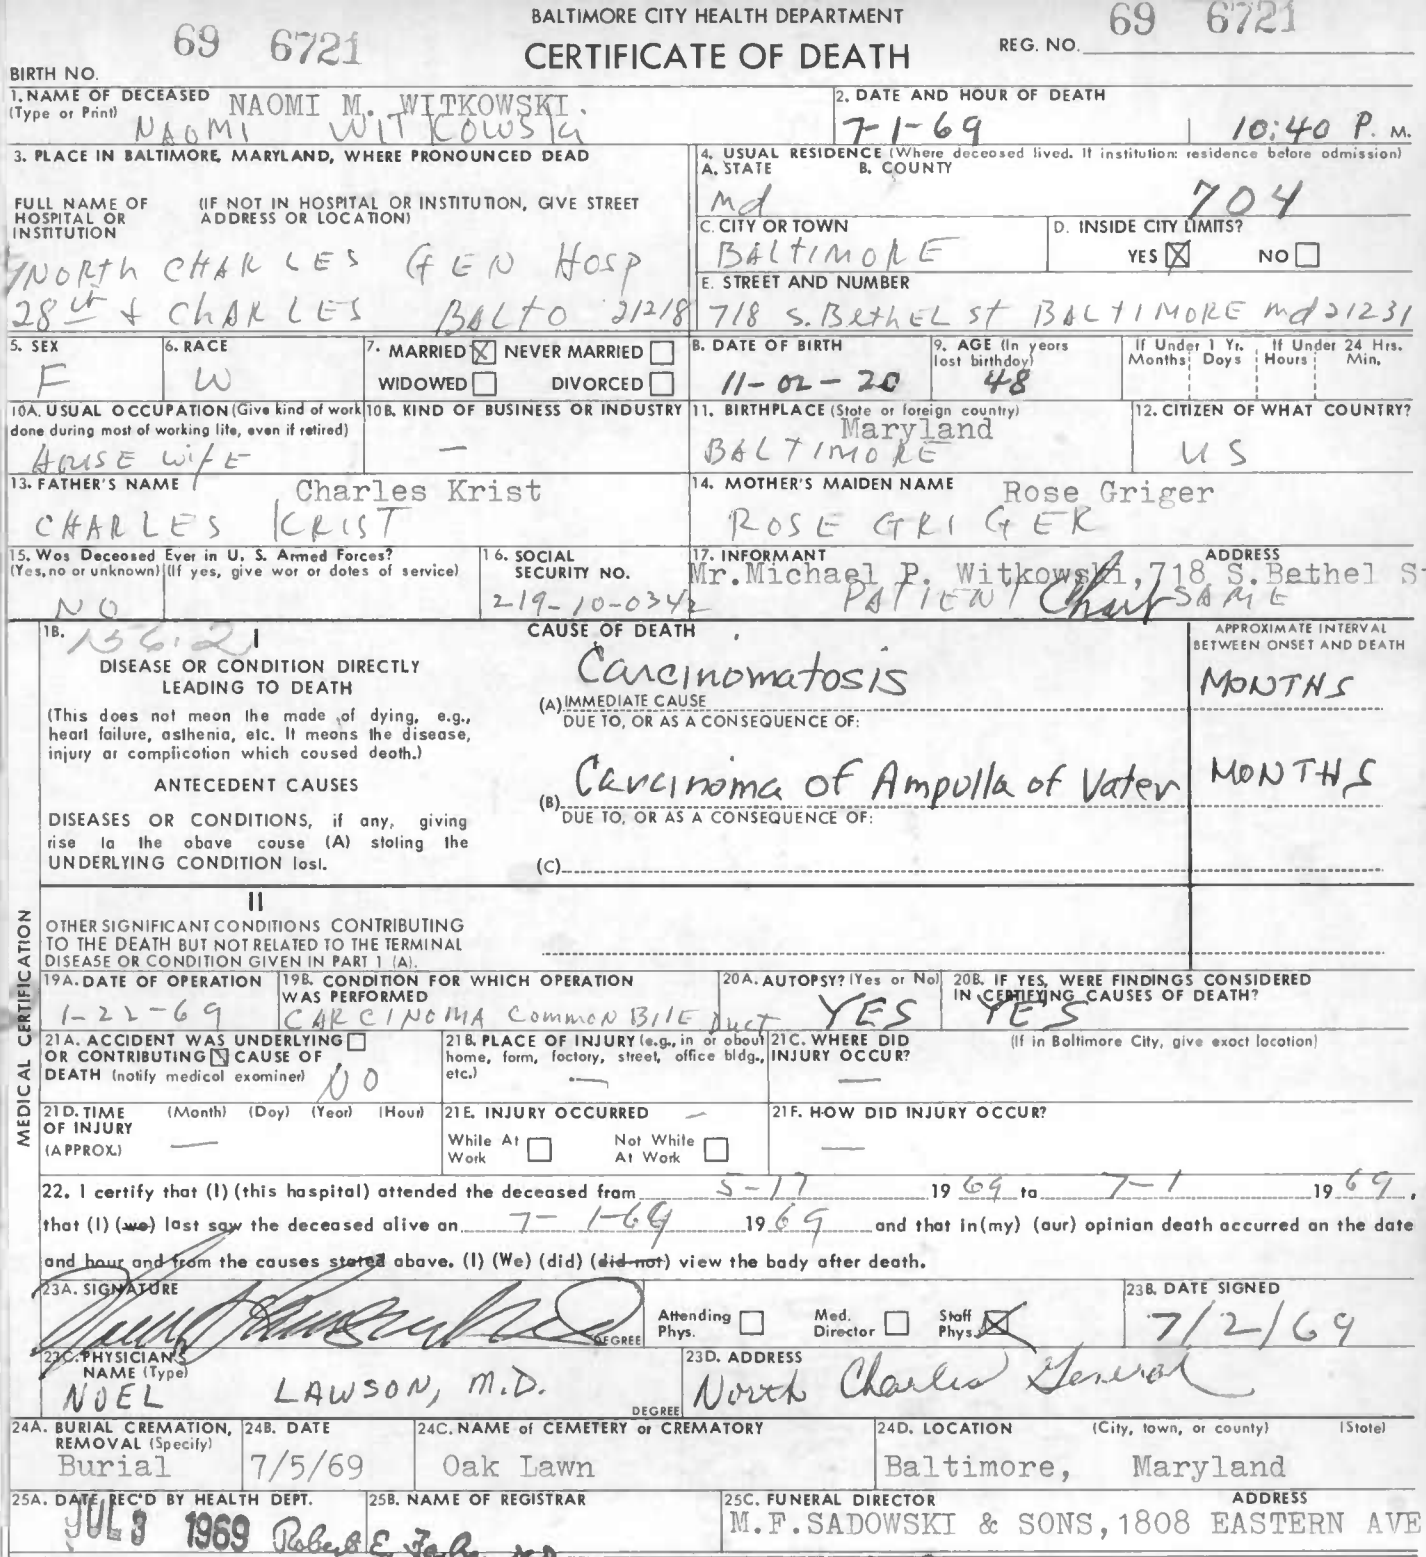 BALTIMORE CITY HEALTH DEPARTMENT
69 6721
CERTIFICATE OF DEATH
REG. NO. 69 6721
BIRTH NO.
1. NAME OF DECEASED NAOMI M. WITKOWSKI.
(Type or Print) NAOMI WITKOWSKI
2. DATE AND HOUR OF DEATH
7-1-69 10:40 P. M.
3. PLACE IN BALTIMORE, MARYLAND, WHERE PRONOUNCED DEAD
FULL NAME OF HOSPITAL OR INSTITUTION
(IF NOT IN HOSPITAL OR INSTITUTION, GIVE STREET ADDRESS OR LOCATION)
NORTH CHARLES GEN HOSP
28th & CHARLES BALTO 21218
4. USUAL RESIDENCE (Where deceased lived. If institution: residence before admission)
A. STATE B. COUNTY
Md 704
C. CITY OR TOWN
BALTIMORE
D. INSIDE CITY LIMITS?
YES NO
E. STREET AND NUMBER
718 S. BethEL st BALTIMORE md 21231
5. SEX
F
6. RACE
W
7. MARRIED NEVER MARRIED
WIDOWED DIVORCED
8. DATE OF BIRTH
11-02-20
9. AGE (In years last birthday)
48
If Under 1 Yr. Months Days
If Under 24 Hrs. Hours Min.
10A. USUAL OCCUPATION (Give kind of work done during most of working life, even if retired)
HOUSE WIFE
10B. KIND OF BUSINESS OR INDUSTRY
—
11. BIRTHPLACE (State or foreign country)
Maryland
BALTIMORE
12. CITIZEN OF WHAT COUNTRY?
US
13. FATHER'S NAME Charles Krist
CHARLES KRIST
14. MOTHER'S MAIDEN NAME Rose Griger
ROSE GRIGER
15. Was Deceased Ever in U. S. Armed Forces?
(Yes, no or unknown) (If yes, give war or dates of service)
NO
16. SOCIAL SECURITY NO.
219-10-0342
17. INFORMANT ADDRESS
Mr. Michael P. Witkowski, 718 S. Bethel St
PATIENT Chart SAME
18. 156.2 I
DISEASE OR CONDITION DIRECTLY
LEADING TO DEATH
(This does not mean the mode of dying, e.g.,
heart failure, asthenia, etc. It means the disease,
injury or complication which caused death.)
ANTECEDENT CAUSES
DISEASES OR CONDITIONS, if any, giving
rise to the above cause (A) stating the
UNDERLYING CONDITION last.
CAUSE OF DEATH
Carcinomatosis
(A) IMMEDIATE CAUSE
DUE TO, OR AS A CONSEQUENCE OF:
Carcinoma of Ampulla of Vater
(B)
DUE TO, OR AS A CONSEQUENCE OF:
(C)
APPROXIMATE INTERVAL
BETWEEN ONSET AND DEATH
MONTHS
MONTHS
MEDICAL CERTIFICATION
II
OTHER SIGNIFICANT CONDITIONS CONTRIBUTING
TO THE DEATH BUT NOT RELATED TO THE TERMINAL
DISEASE OR CONDITION GIVEN IN PART 1 (A).
19A. DATE OF OPERATION
1-22-69
19B. CONDITION FOR WHICH OPERATION
WAS PERFORMED
CARCINOMA Common Bile Duct
20A. AUTOPSY? (Yes or No)
YES
20B. IF YES, WERE FINDINGS CONSIDERED
IN CERTIFYING CAUSES OF DEATH?
YES
21A. ACCIDENT WAS UNDERLYING
OR CONTRIBUTING CAUSE OF
DEATH (notify medical examiner) NO
21B. PLACE OF INJURY (e.g., in or about
home, farm, factory, street, office bldg.,
etc.) —
21C. WHERE DID INJURY OCCUR?
(If in Baltimore City, give exact location)
—
21D. TIME OF INJURY (APPROX.)
(Month) (Day) (Year) (Hour)
—
21E. INJURY OCCURRED —
While At Work Not While At Work
21F. HOW DID INJURY OCCUR?
—
22. I certify that (I) (this hospital) attended the deceased from 5-17 1969 to 7-1 1969,
that (I) (we) last saw the deceased alive on 7-1-69 1969 and that in (my) (our) opinion death occurred on the date
and hour and from the causes stated above. (I) (We) (did) (did not) view the body after death.
23A. SIGNATURE
DEGREE
Attending Phys. Med. Director Staff Phys.
23B. DATE SIGNED
7/2/69
23C. PHYSICIAN'S
NAME (Type)
NOEL LAWSON, M.D.
DEGREE
23D. ADDRESS
North Charles General
24A. BURIAL CREMATION,
REMOVAL (Specify)
Burial
24B. DATE
7/5/69
24C. NAME of CEMETERY or CREMATORY
Oak Lawn
24D. LOCATION (City, town, or county) (State)
Baltimore, Maryland
25A. DATE REC'D BY HEALTH DEPT.
JUL 3 1969
25B. NAME OF REGISTRAR
Robert E.
25C. FUNERAL DIRECTOR ADDRESS
M.F.SADOWSKI & SONS, 1808 EASTERN AVE